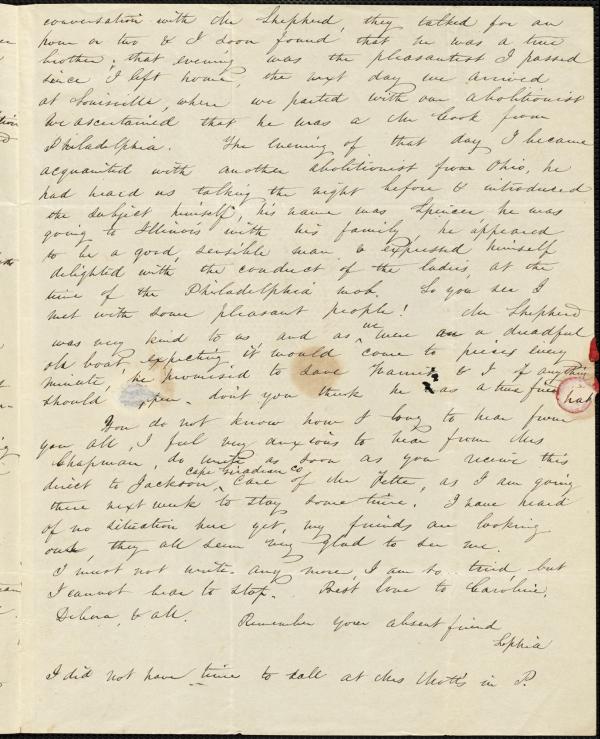 conversation with Mr Shepherd, they talked for an
hour or two & I soon found that he was a true
brother; that evening was the pleasantest I passed
since I left home, the next day we arrived
at Louisville, where we parted with our abolitionist
We ascertained that he was a Mr Cook from
Philadelphia. The evening of that day I became
acquainted with another abolitionist from Ohio, he
had heard us talking the night before & introduced
the subject himself, his name was Spencer, he was
going to Illinois with his family, he appeared
to be a good, sensible man & expressed himself
delighted with the conduct of the ladies, at the
time of the Philadelphia mob. So you see I
met with some pleasant people! Mr Shepherd
was very kind to us and as we were on a dreadful
old boat, expecting it would come to pieces every
minute, he promised to save & I if anything
should pen. don't you think he was a true friend
hap
You do not know how I long to hear from
you all, I feel very anxious to hear from Mrs
Chapman, do write as soon as you receive this,
direct to Jackson, Cape Giradeau Co, Care of Mr , as I am going
there next week to stay some time. I have heard
of no situation here yet, my friends are looking
out, they all seem very glad to see me.
I must not write any more, I am so tired, but
I cannot bear to stop. Best love to Caroline,
Debora, & all.
Remember your absent friend
Sophia
I did not have time to call at Mrs Mott's in P.